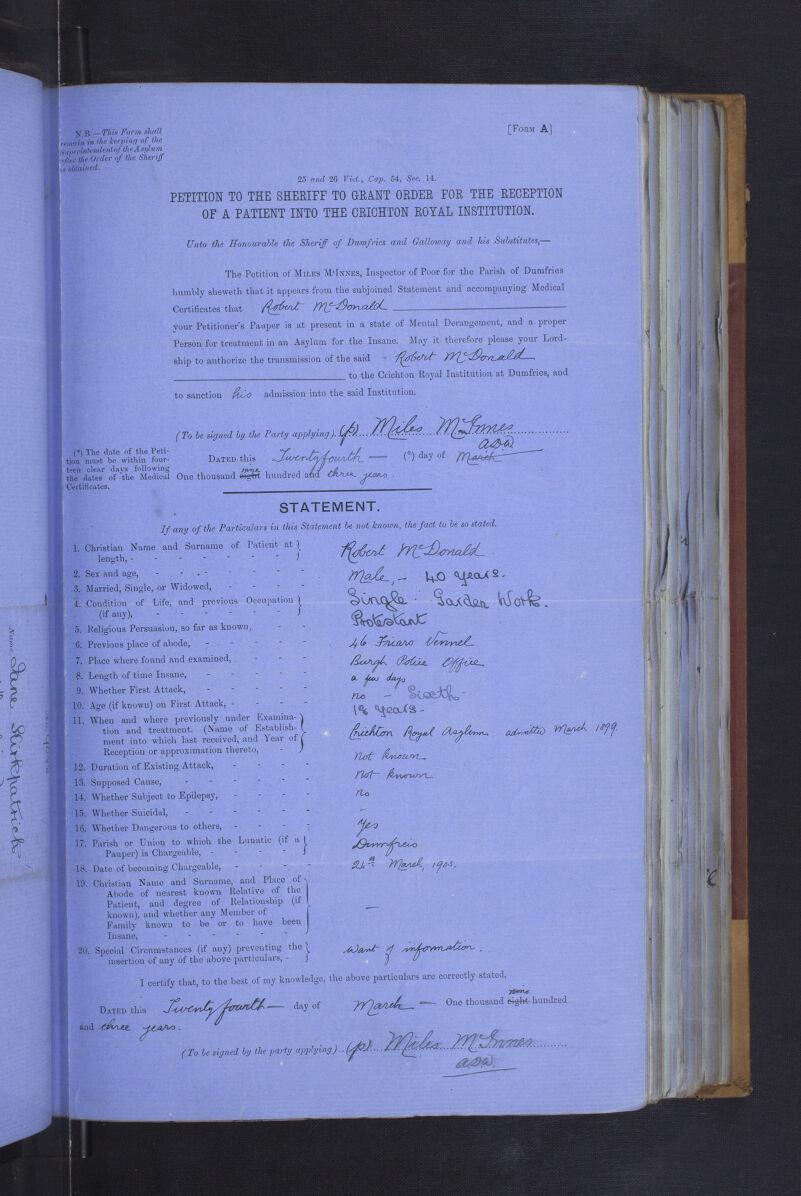 N.B.—This Form shall
remain in the keeping of the
Superintendent of the Asylum
after the Order of the Sheriff
is obtained.
[FORM A]
25 and 26 Vict., Cap. 54, Sec. 14.
PETITION TO THE SHERIFF TO GRANT ORDER FOR THE RECEPTION
OF A PATIENT INTO THE CRICHTON ROYAL INSTITUTION.
Unto the Honourable the Sheriff of Dumfries and Galloway and his Substitutes,—
The Petition of MILES M'INNES, Inspector of Poor for the Parish of Dumfries
humbly sheweth that it appears from the subjoined Statement and accompanying Medical
Certificates that Robert McDonald
your Petitioner's Pauper is at present in a state of Mental Derangement, and a proper
Person for treatment in an Asylum for the Insane. May it therefore please your Lord-
ship to authorize the transmission of the said - Robert McDonald
to the Crichton Royal Institution at Dumfries, and
to sanction his admission into the said Institution.
(To be signed by the Party applying). (p) Miles McInnes
(*) The date of the Peti-
tion must be within four-
teen clear days following
the dates of the Medical
Certificates.
DATED this Twenty fourth — (*) day of March
One thousand eight nine hundred and three years.
STATEMENT.
If any of the Particulars in this Statement be not known, the fact to be so stated.
1. Christian Name and Surname of Patient at length, - Robert McDonald
2. Sex and age, - Male, - 40 years.
3. Married, Single, or Widowed, - Single
4. Condition of Life, and previous Occupation (if any), - Garden Work.
5. Religious Persuasion, so far as known, - Protestant
6. Previous place of abode, - 46 Friars Vennel
7. Place where found and examined, - Burgh Police Office
8. Length of time Insane, - a few days
9. Whether First Attack, - no - Sixth -
10. Age (if known) on First Attack, - years -
11. When and where previously under Examina-
tion and treatment. (Name of Establish-
ment into which last received, and Year of
Reception or approximation thereto, - Crichton Royal Asylum admitted March 1899
12. Duration of Existing Attack, - not known
13. Supposed Cause, - not known
14. Whether Subject to Epilepsy, - no
15. Whether Suicidal, - -
16. Whether Dangerous to others, - yes
17. Parish or Union to which the Lunatic (if a
Pauper) is Chargeable, - Dumfries
18. Date of becoming Chargeable, - 24th March, 1903.
19. Christian Name and Surname, and Place of
Abode of nearest known Relative of the
Patient, and degree of Relationship (if
known), and whether any Member of
Family known to be or to have been
Insane, - —
20. Special Circumstances (if any) preventing the
insertion of any of the above particulars, - Want of information.
I certify that, to the best of my knowledge, the above particulars are correctly stated.
DATED this Twenty fourth — day of March — One thousand eight nine hundred
and three years.
(To be signed by the party applying) (p) Miles McInnes
Name Jane Kirkpatrick